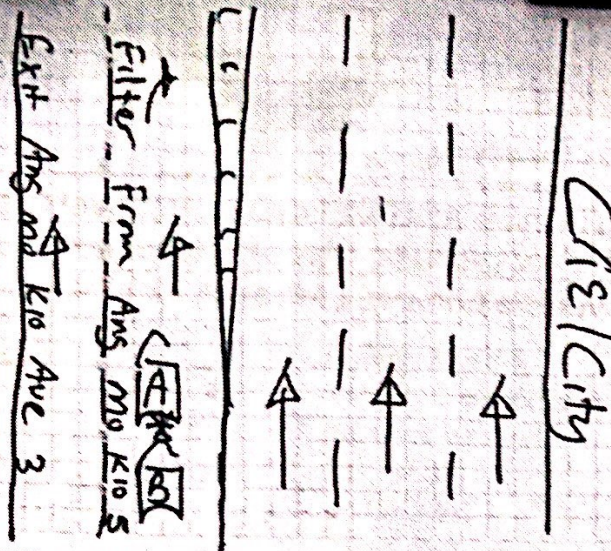 CTE/City
Filter From Ang Mo Kio 5
Exit Ang Mo Kio Ave 3